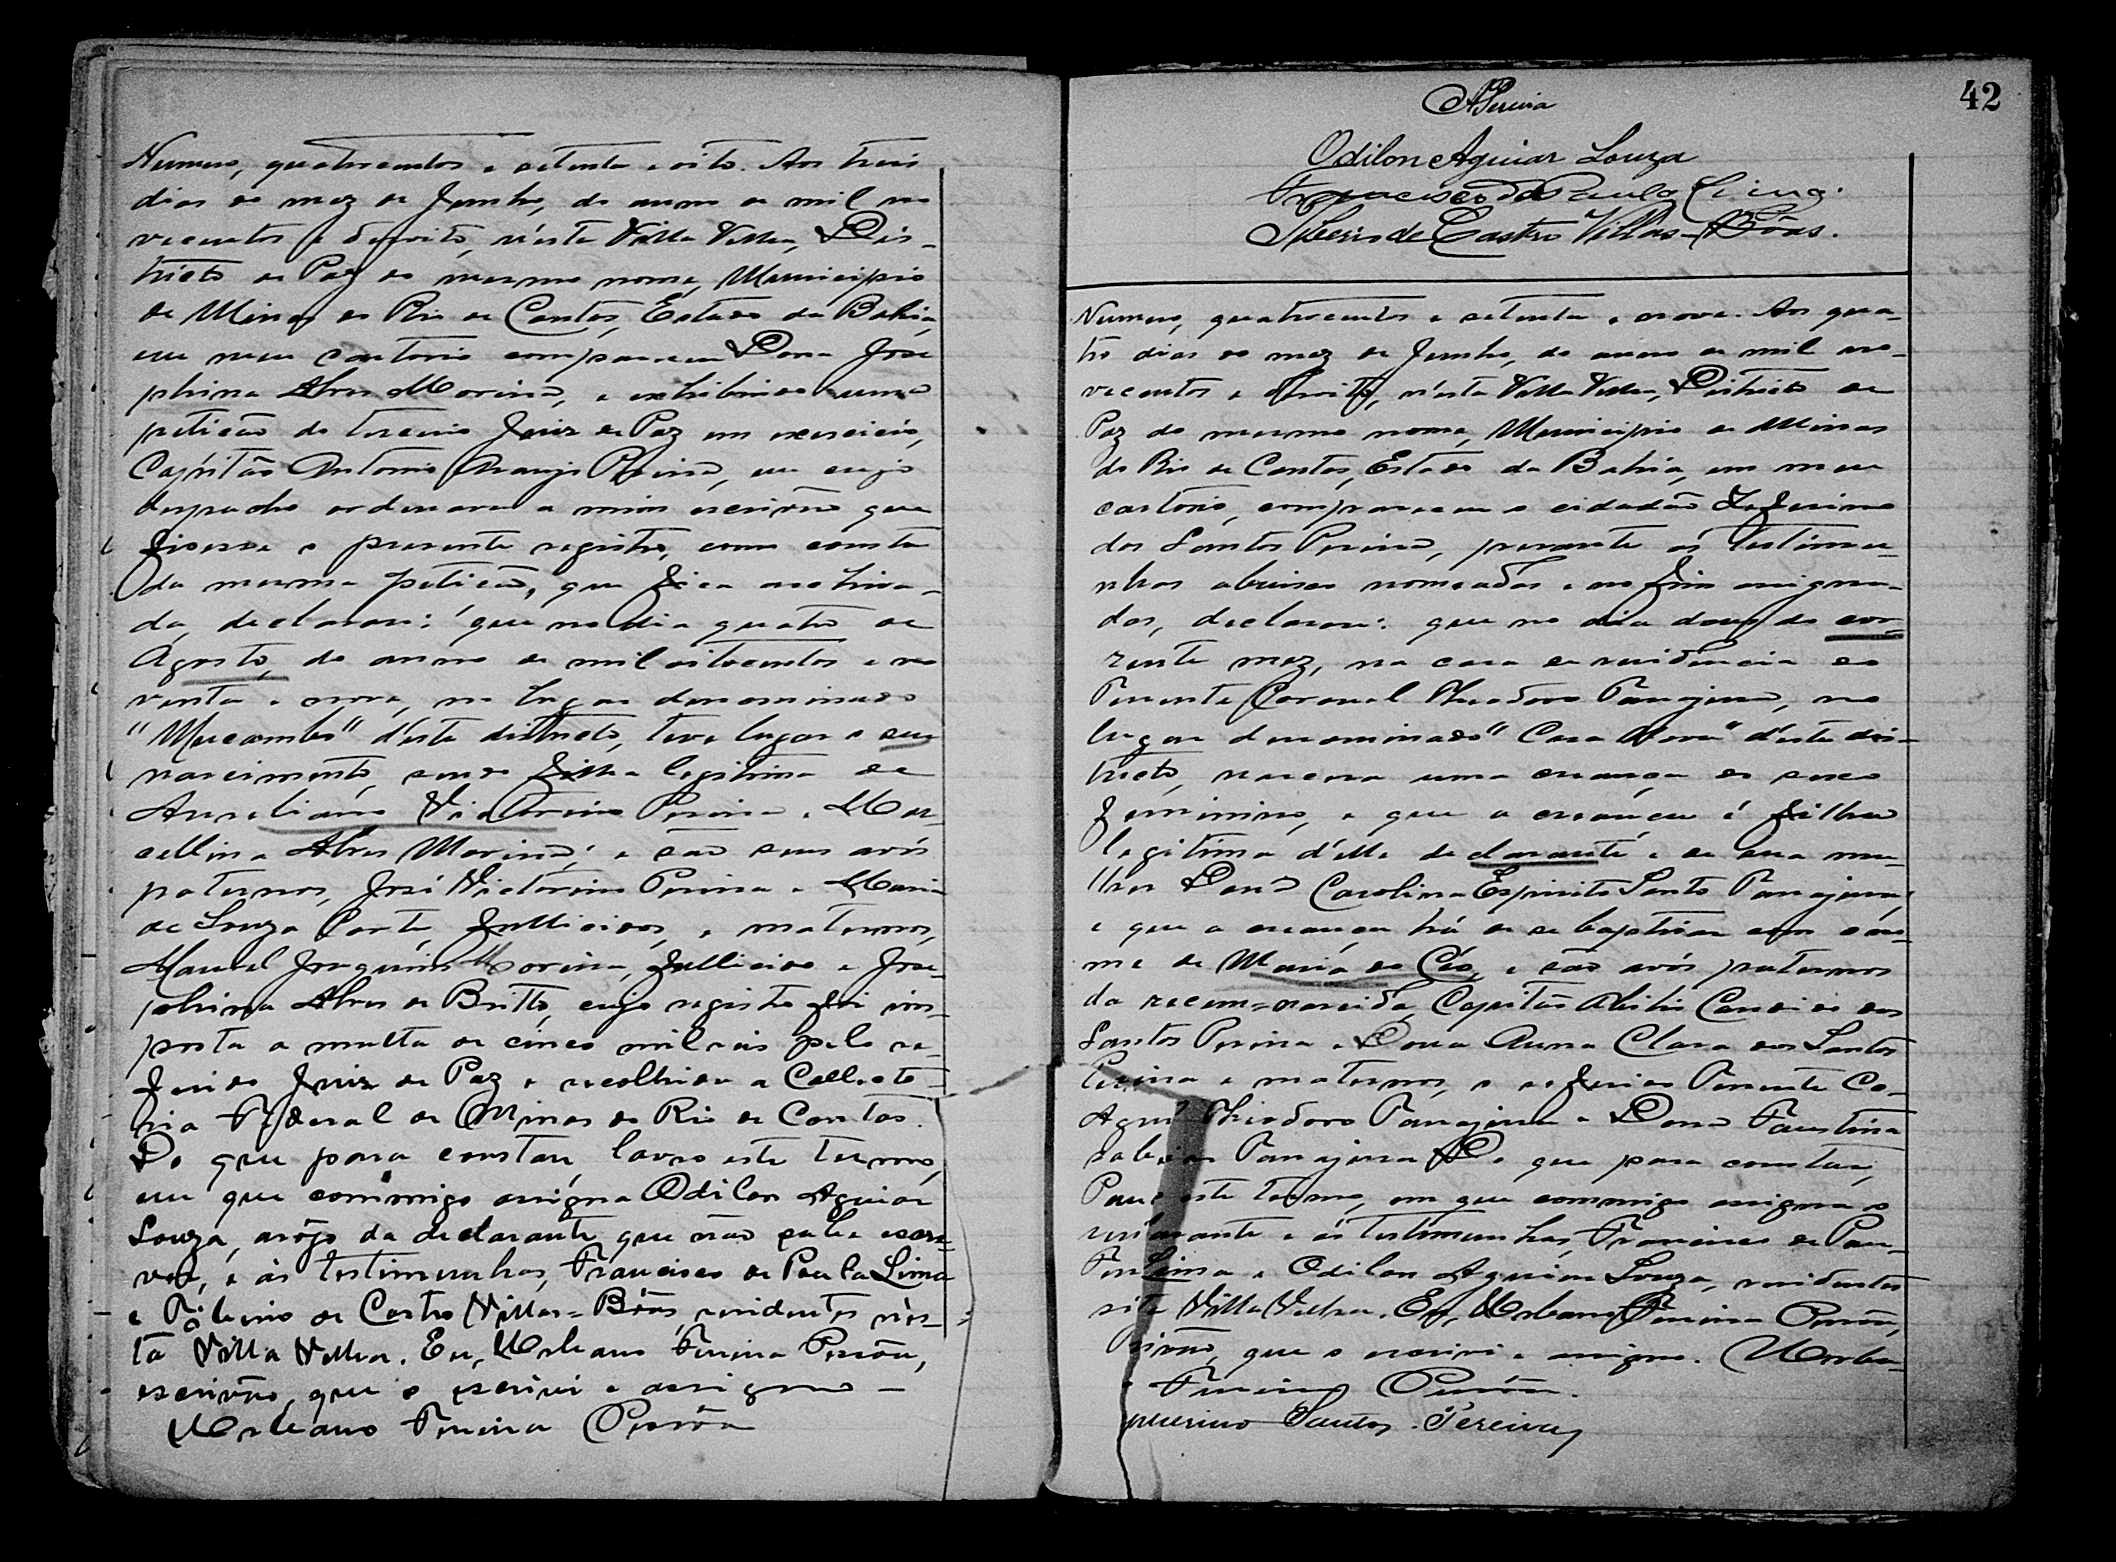 Numero, quatrocentos e setenta e oito. Aos treis
dias do mez de Junho, do anno de mil no
vecentos e desoito, n'esta Villa Velha, Dis-
tricto de Paz do mesmo nome, Municipio
de Minas do Rio de Contas, Estado da Bahia,
em meu cartorio compareceu Dona Jose
phina Alves Morina, e exhibindo uma
petição do terceiro Juiz de Paz em exercicio,
Capitão Antonio Araujo Pereira, em cujo
despacho ordenara a mim escrivão que
fizesse o presente registro, como consta
da mesma petição, que fica archiva-
da, declarou: que no dia quatro de
Agosto, do anno de mil oitocentos e no
venta e nove, no lugar denominado
"Mucambo" d'este districto, teve lugar o seu
nascimento, sendo filha legitima de
Aureliano Victorino Pereira e Mar-
cellina Alves Morina; e são seus avós
paternos, José Victorino Pereira e Maria
de Souza Porto, fallecidos, e maternos,
Manoel Joaquim Morina, fallecido e Jose-
phina Alves de Britto, cujo registro foi im-
posta a multa de cinco mil reis pelo re-
ferido Juiz de Paz e recolhida a Collecto-
ria Federal de Minas do Rio de Contas.
Do que para constar, lavro este termo,
em que commigo assigna Odilon Aguiar
Souza, arôgo da declarante que não sabe escre-
ver, e ás testimunhas, Francisco de Paula Lima
e Tiberio de Castro Villas-Bôas, residentes n'es-
ta Villa Velha. Eu, Urbano Pereira
escrivão, que o escrivi e assigno
Urbano Pereira
42
APereira
Odilon Aguiar Souza
Francisco de Paula Lima.
Tiberio de Castro Villas-Bôas.
Numero, quatrocentos e setenta e nove. Aos qua-
tro dias do mez de Junho, do anno de mil no-
vecentos e desoito, n'esta Villa Velha, Districto de
Paz do mesmo nome, Municipio de Minas
do Rio de Contas, Estado da Bahia, em meu
cartorio, compareceu o cidadão Zeferino
dos Santos Pereira, perante ás testimu-
nhas abaixo nomeadas e no fim assigna-
das, declarou: que no dia dous do cor-
rente mez, na casa de residencia do
Tenente Coronel Theodoro Tanajura, no
lugar denominado "Casa Nova" d'este dis-
tricto, nascera uma creança do sexo
feminino, e que a creança é filha
legitima d'elle declarante e de sua mu-
lher Dona Carolina Espirito Santo Tanajura,
e que a creança há de se baptisar com o no-
me de Maria do Céo, e são avós paternos
da recem-nascida, Capitão Candido dos
Santos Pereira e Dona Anna Clara dos Santos
Pereira e maternos, o referido Tenente Co-
Theodoro Tanajura e Dona Faustina
Tanajura. Do que para constar,
este termo, em que commigo assigna o
declarante e ás testimunhas, Francisco de Pau-
Lima e Odilon Aguiar Souza, residentes
Villa Velha. Eu, Urbano Pereira
que o escrivi e assigno. Urba-
Pereira
Santos Pereira